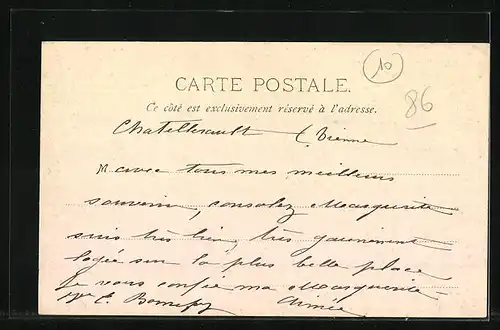 10
CARTE POSTALE.
86
Ce côté est exclusivement réservé à l'adresse.
Chatellerault (Vienne
M avec tous mes meilleurs
souvenirs, consolez Marguerite
suis très bien, très gaiement
logée sur la plus belle place
Je vous confie ma Marguerite
E. Aimée